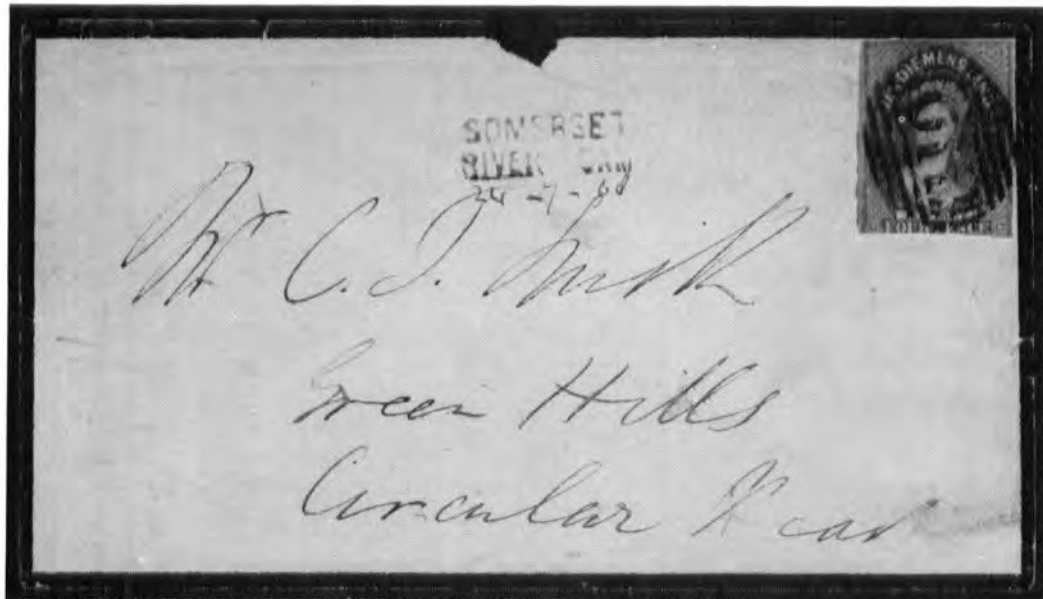 SOMERSET
RIVER CAM
24-7-60
VAN DIEMENS LAND
FOURPENCE
Mr C. J. Smith
Green Hills
Circular Head